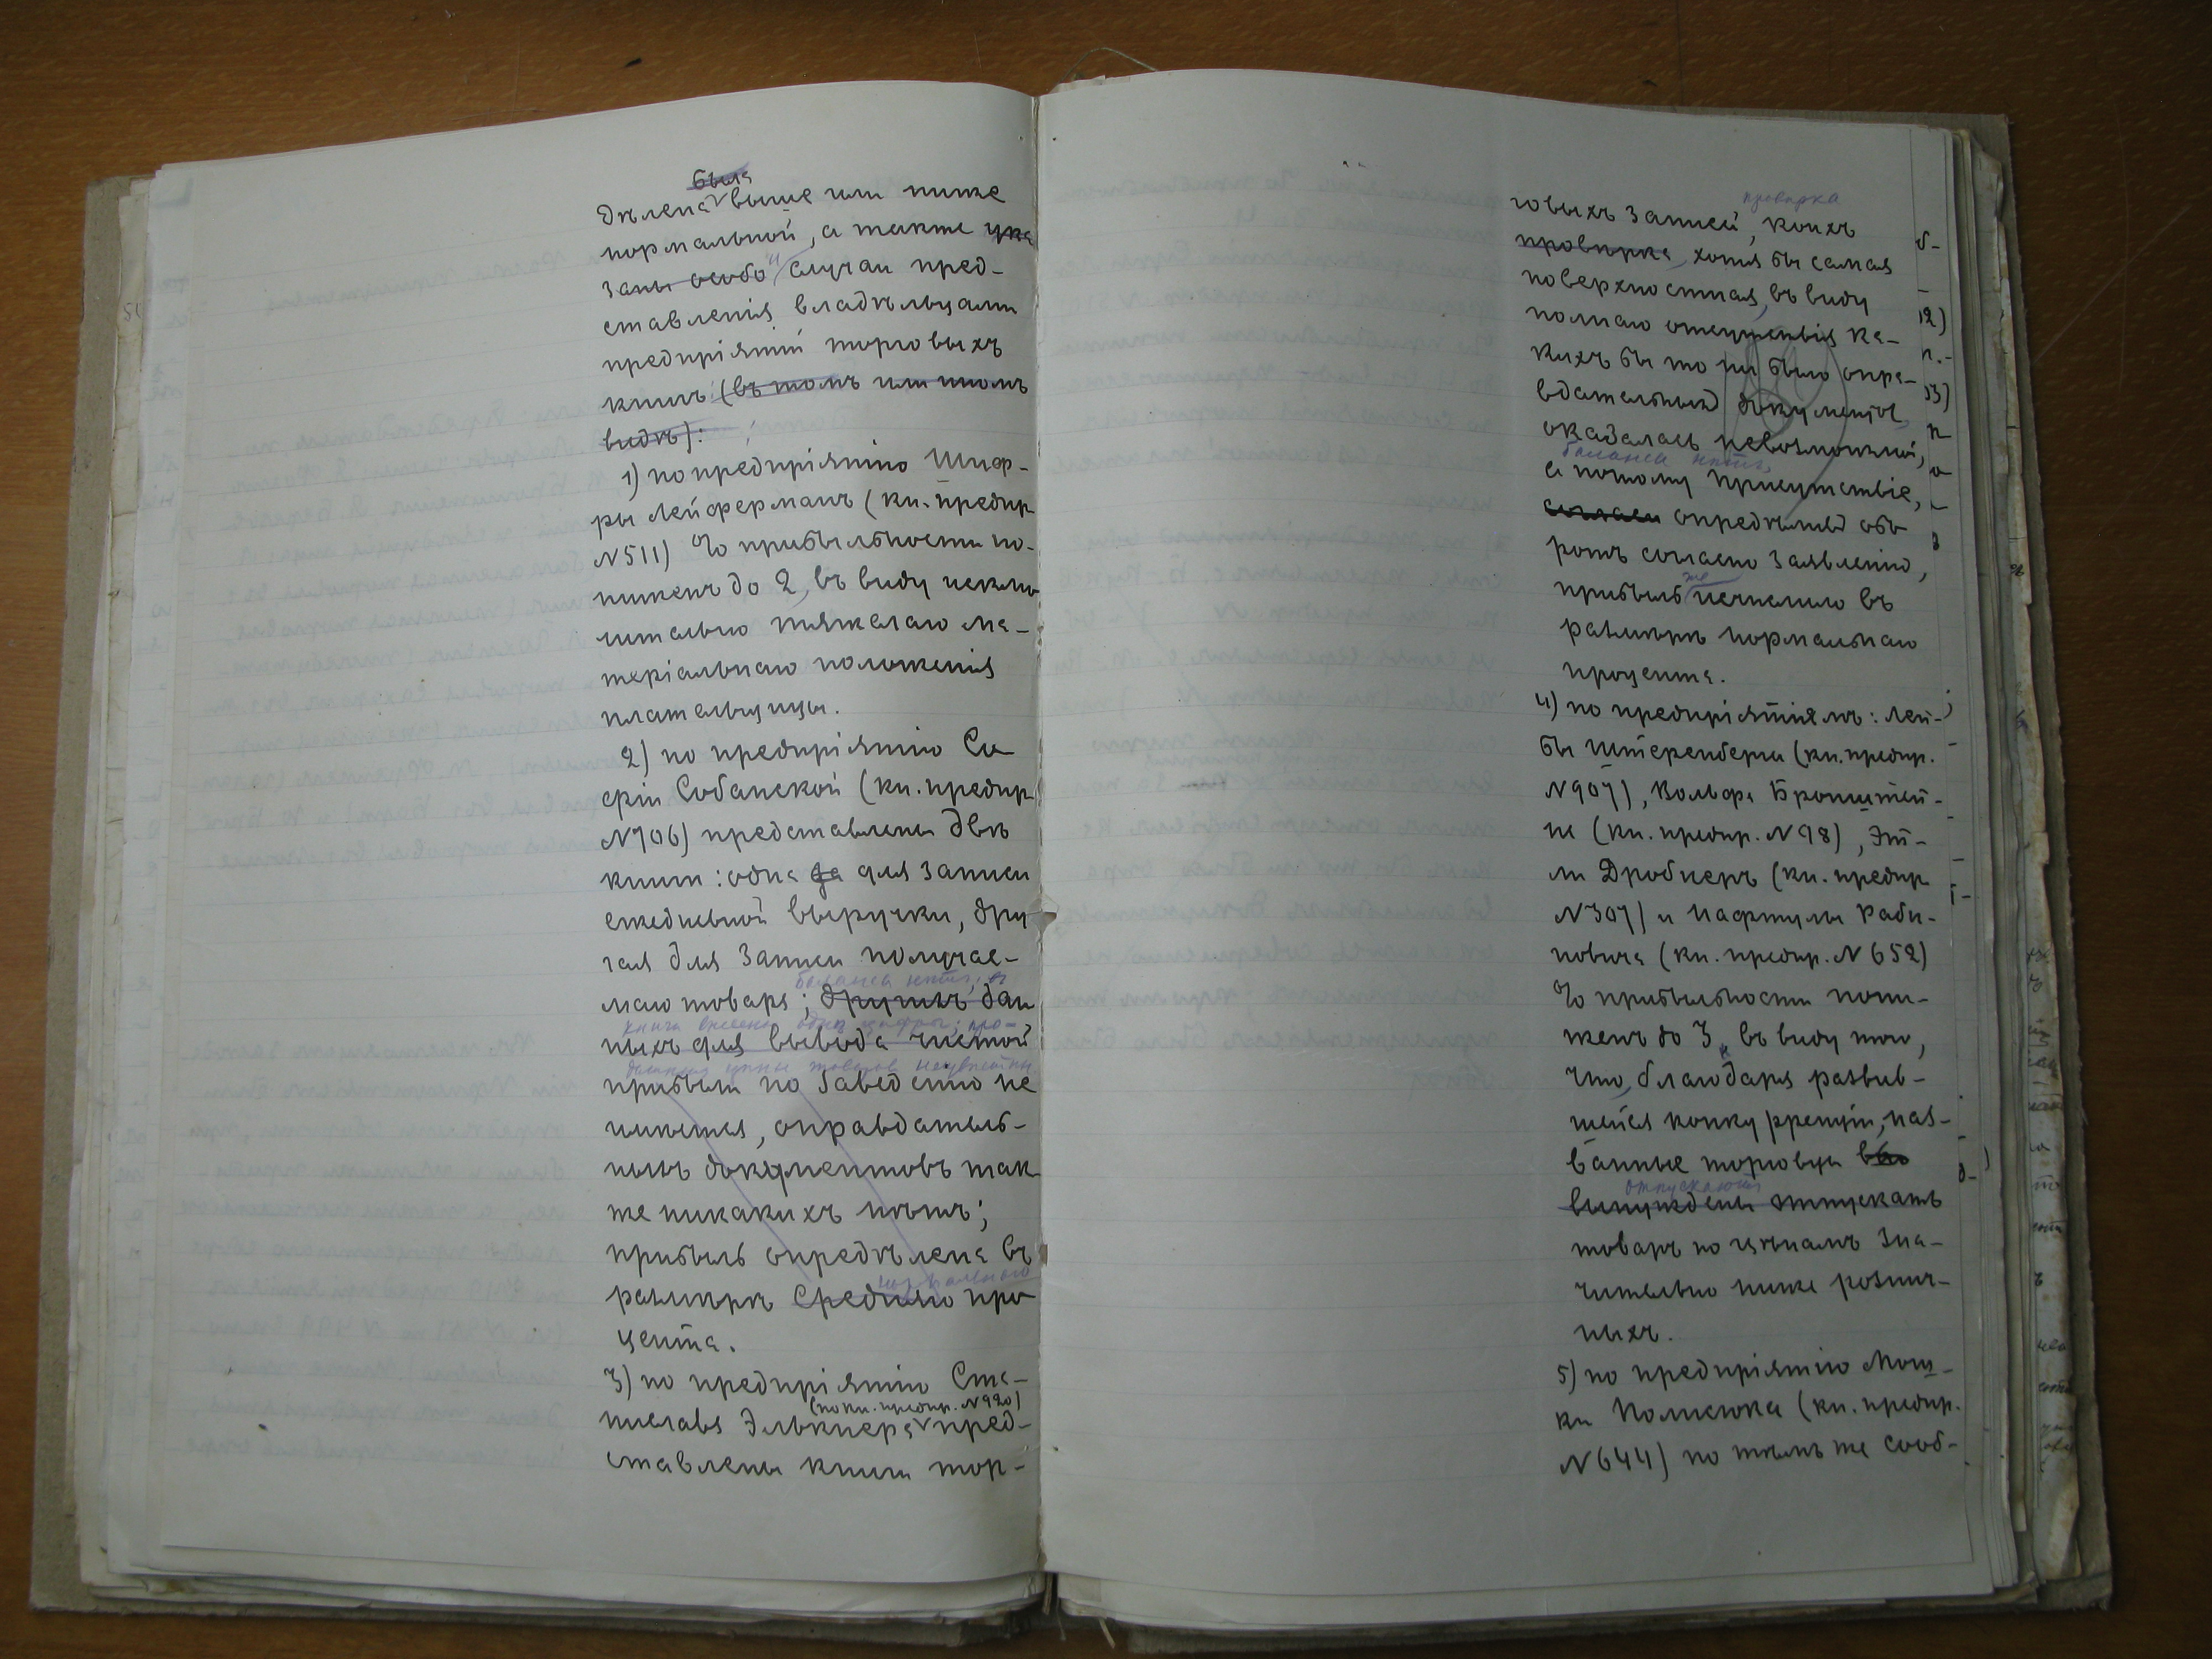 была
дѣлена выше или ниже
нормальной, а также ука
заны особо и случаи пред-
ставленія владѣльцами
предпріятій торговыхъ
книгъ (въ томъ или иномъ
видѣ):
1) по предпріятію Шиф-
ры Лейферманъ (кн. предпр.
N511) % прибыльности по-
ниженъ до 2, въ виду исклю
чительно тяжелаго ма-
теріальнаго положенія
плательщицы.
2) по предпріятію Со
фіи Собанской (кн. предпр.
N706) представлены двѣ
книги: одна за для записи
ежедневной выручки, дру
гая для записи получае-
баланса нѣтъ, въ
маго товара; другихъ дан
книги внесены одни цифры; про-
ныхъ для вывода чистой
цѣны товаровъ неизвѣстны
прибыли по заведенію не
имѣется, оправдатель-
ныхъ документовъ так
же никакихъ нѣтъ;
прибыль опредѣлена въ
нормальнаго
размѣрѣ средняго про
цента.
3) по предпріятію Ста-
(по кн. предпр. N920)
нислава Элькнера пред-
ставлены книги тор-
проверка
говыхъ записей, коихъ
провѣрка, хотя бы самая
поверхностная, въ виду
полнаго отсутствія ка-
кихъ бы то ни было опра-
вдательныхъ документовъ,
оказалась невозможной,
баланса нѣтъ,
а потому присутствіе,
согласн опредѣливъ обо
ротъ согласно заявленію,
же
прибыль исчислило въ
размѣрѣ нормальнаго
процента.
4) по предпріятіямъ: Лей-
бы Штеренберга (кн. предпр.
N907), Вольфа Бронштей-
на (кн. предпр. N98), Эт-
ли Дробнеръ (кн. предпр
N307) и Нафтулы Раби-
новича (кн. предпр. N652)
% прибыльности пони-
женъ до 3, въ виду того,
что, благодаря развив-
шейся конкурренціи, наз-
ванные торговцы вы
отпускаютъ
вынуждены отпускать
товаръ по цѣнамъ зна-
чительно ниже рознич-
ныхъ.
5) по предпріятію Мош-
ки Полисюка (кн. предпр.
N644) по тѣмъ же сооб-